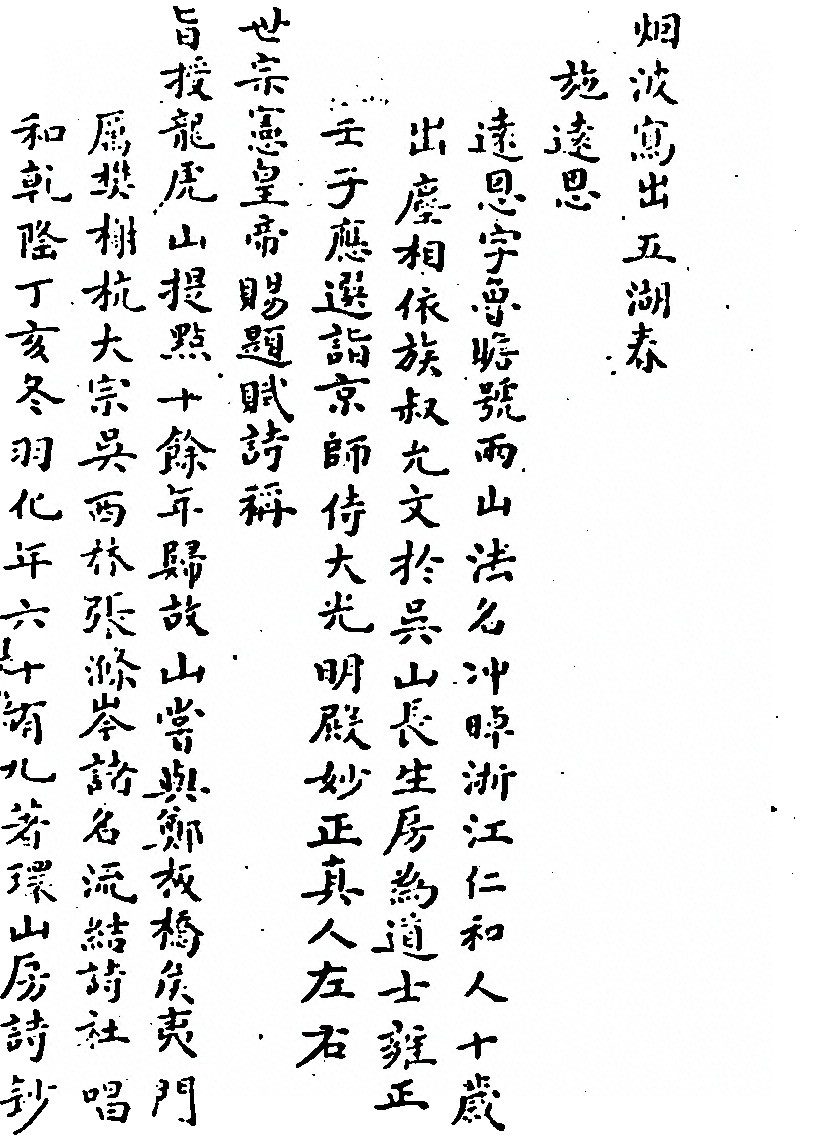 烟波寫出五湖春
施遠恩
遠恩字魯瞻號雨山法名冲暐浙江仁和人十歲
出塵相依族叔允文於吳山長生房為道士雍正
壬子應選詣京師侍大光明殿妙正真人左右
世宗憲皇帝賜題賦詩稱
旨授龍虎山提點十餘年歸故山嘗與鄭板橋侯夷門
厲樊榭杭大宗吳西林張滌岑諸名流結詩社唱
和乾隆丁亥冬羽化年六十有九著環山房詩鈔